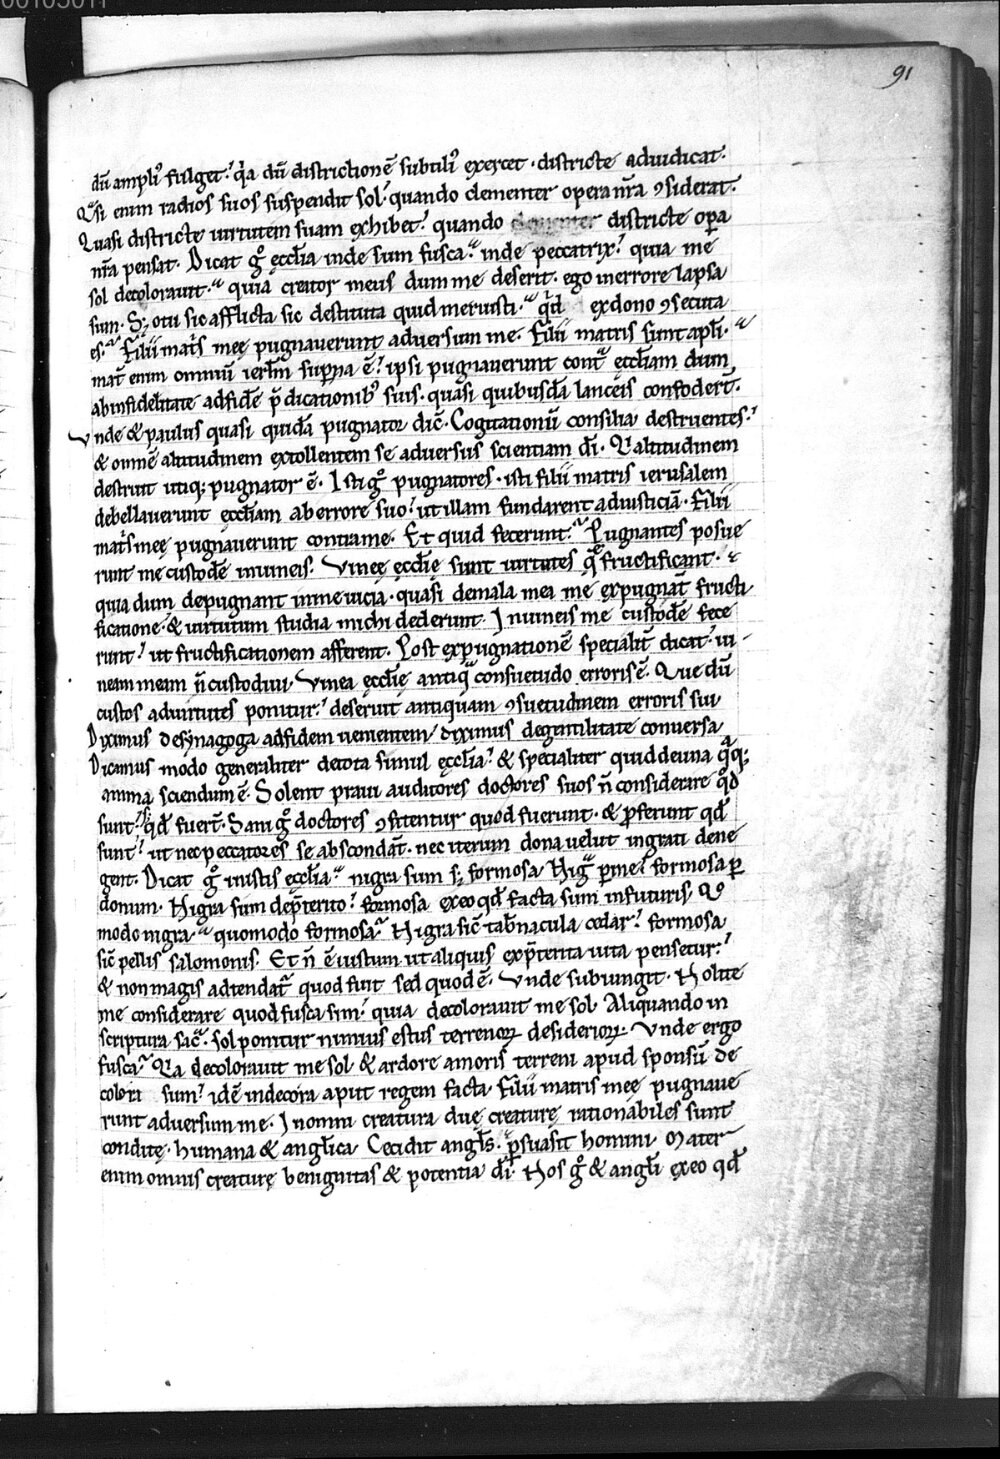 91
dū ampli' fulget. q̄a dū districtionē subtili' exercet. districte adiudicat.
Q̄si enim radios suos suspendit sol. quando clementer opera nr̄a ꝯsiderat.
Quasi districte uirtutem suam exhibet. quando districte opa
nr̄a pensat. Dicat gͦ ęcclīa inde sum fusca. inde peccatrix. quia me
sol decolorauit. quia creator meus dum me deserit. ego in errore lapsa
sum. Sȝ o tu sic afflicta sic destituta quid meruisti. qd̄ ex dono ꝯsecuta
es. Filii mat̄s meę pugnauerunt aduersum me. Filii matris sunt apl̄i.
mat̄ enim omniū ierl̄m supna ē. ipsi pugnauerunt cont̄ ęccl̄iam dum
ab infidelitate ad fidē p̄dicationib' suis. quasi quibusdā lanceis confoder̄t.
Vnde & paulus quasi quidā pugnator dic̄. Cogitationū consilia destruentes.
& omnē altitudinem extollentem se aduersus scientiam dī. Q̄ altitudinem
destruit utiq; pugnator ē. Isti gͦ pugnatores. isti filii matris ierusalem
debellauerunt ęccl̄iam ab errore suo. ut illam fundarent ad iusticiā. Filii
mat̄s meę pugnauerunt contra me. Et quid fecerunt. Pugnantes posue
runt me custodē in uineis. Vineę ęccl̄ię sunt uirtutes quę fructificant.
quia dum depugnant in me uicia. quasi de mala mea me expugnat̄ fructi
ficatione. & uirtutum studia michi dederunt. In uineis me custodē fece
runt. ut fructificationem afferent. Post expugnationē specialit̄ dicat. ui
neam meam n̄ custodiui. Vinea ęccl̄ię antiq̄ consuetudo erroris ē. Que dū
custos ad uirtutes ponitur. deseruit antiquam ꝯsuetudinem erroris sui
Diximus de synagoga ad fidem uenientem / diximus de gentilitate conuersa
Dicamus modo generaliter de tota simul ęccl̄ia. & specialiter quid de una q̄q;
anima sciendum ē. Solent praui auditores doctores suos n̄ considerare qd̄
sunt. s; qd̄ fuer̄t. Sani gͦ doctores ꝯfitentur quod fuerunt. & pferunt qd̄
sunt. ut nec peccatores se abscondāt. nec iterum dona uelut ingrati dene
gent. Dicat gͦ in istis ęccl̄ia. nigra sum s; formosa. Nigͣ p me. formosa p
donum. Nigra sum de p̄terito. formosa ex eo qd̄ facta sum in futuris. Q̊
modo nigra. quomodo formosa. Nigra sic̄ tab̄nacula cedar. formosa
sic̄ pellis salomonis. Et n̄ ē iustum ut aliquis ex p̄terita uita pensetur.
& non magis adtendat̄ quod fuit sed quod ē. Vnde subiungit. Nolite
me considerare quod fusca sim. quia decolorauit me sol. Aliquando in
scriptura sac̄. sol ponitur nimius estus terrenoꝝ desiderioꝝ. Vnde ergo
fusca. Q̄a decolorauit me sol & ardore amoris terreni apud sponsū de
colori sum. idē indecora aput regem facta. Filii matris meę pugnaue
runt aduersum me. In omni creatura duę creaturę rationabiles sunt
conditę. humana & angl̄ica. Cecidit angl̄s. psuasit homini. Mater
enim omnis creaturę benignitas & potentia dī. Nos gͦ & angl̄i ex eo qd̄